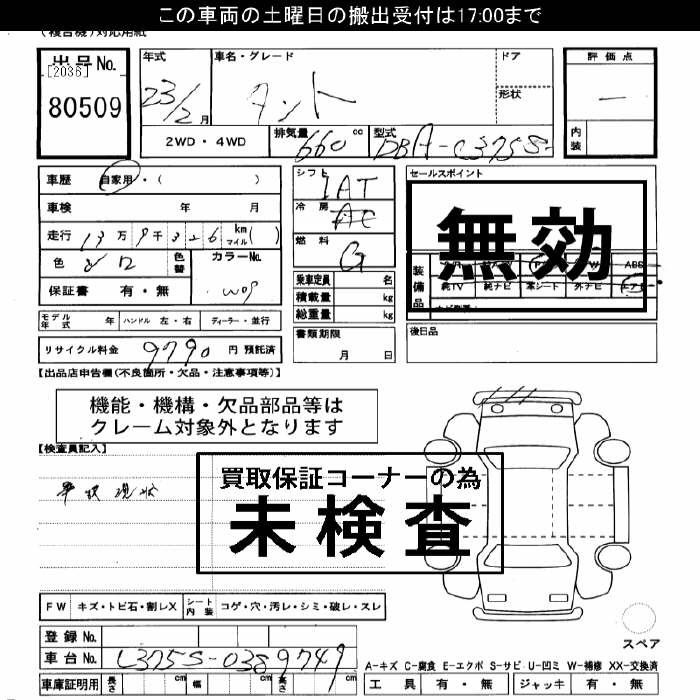 この車両の土曜日の搬出受付は17:00まで
(複合機)対応用紙
出品No.
[2036]
80509
年式
23/2月
車名・グレード
タント
ドア
形状
評価点
一
内装
2WD・4WD
排気量
660cc
型式
DBA-L375S
車歴 自家用・( )
車検 年 月
走行 13万9千326 km マイル( )
色 シロ
色替
カラーNo.
W09
保証書 有・無
シフト
IAT
冷房
AC
燃料
G
乗車定員 名
積載量 kg
総重量 kg
セールスポイント
無効
装備品
ABS
純TV 純ナビ 革シート 外ナビ エアB
モデル年式 年 ハンドル 左・右 ディーラー・並行
リサイクル料金 9790 円 預託済
書類期限
月 日
後日品
【出品店申告欄(不良箇所・欠品・注意事項等)】
機能・機構・欠品部品等は
クレーム対象外となります
【検査員記入】
現状
買取保証コーナーの為
未検査
FW キズ・トビ石・割レX シート内装 コゲ・穴・汚レ・シミ・破レ・スレ
スペア
登録No.
車台No. L375S-0389749
車庫証明用 長さ cm 幅 cm 高さ cm
A-キズ C-腐食 E-エクボ S-サビ U-凹ミ W-補修 XX-交換済
工具 有・無 ジャッキ 有・無